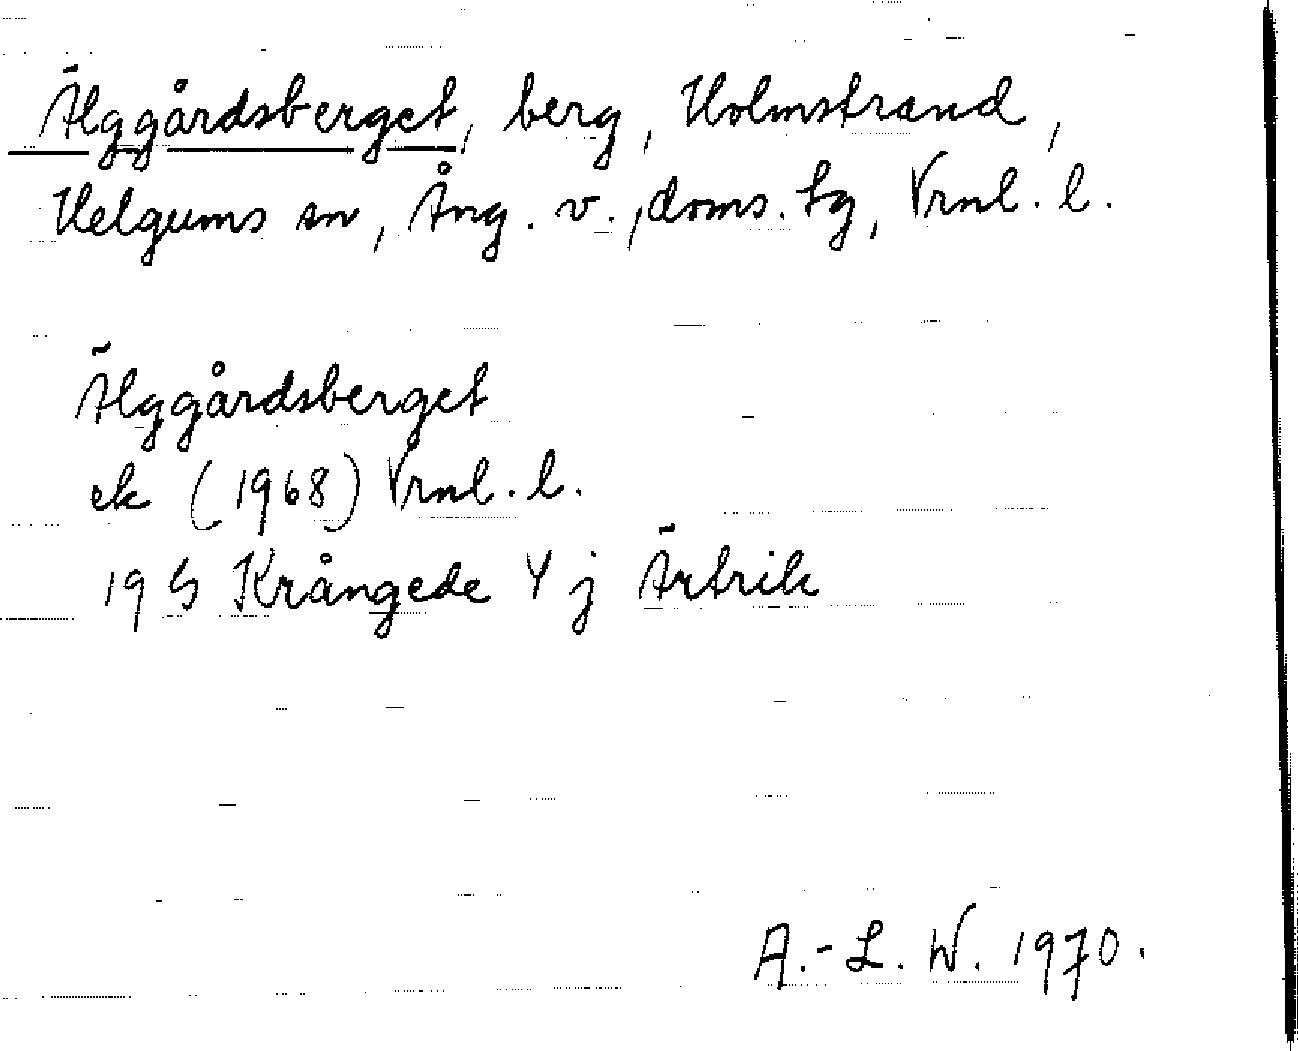 Älggårdsberget, berg, Holmstrand,
Helgums sn, Ång. v., doms. tg, Vrnl. l.
Älggårdsberget
ek (1968) Vrnl. l.
19 G Krångede 4 j Ärtrik
A.-L. W. 1970.